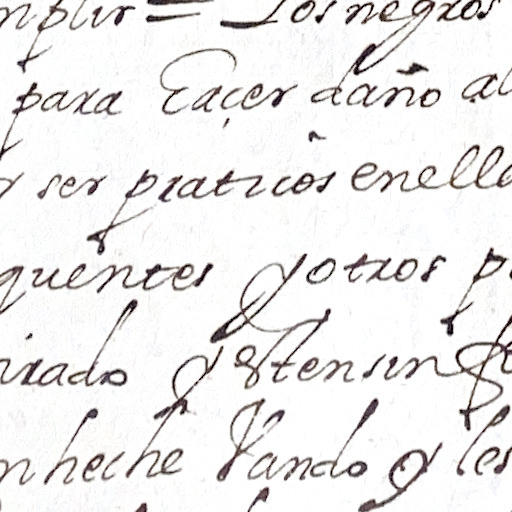 mplir = Los negros
para haçer daño al
y ser praticos en ella
quentes y otros p
irado y esten sin
n heche Vando y les